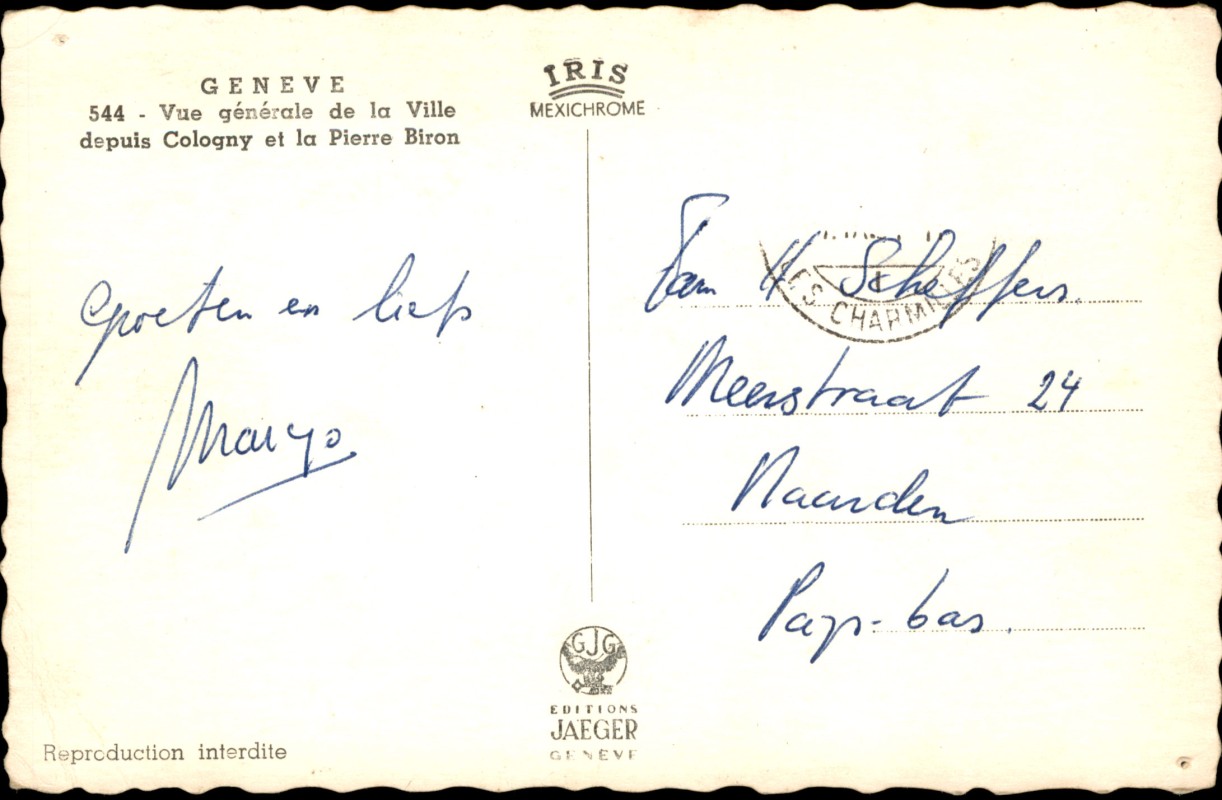 GENEVE
544 - Vue générale de la Ville
depuis Cologny et la Pierre Biron
IRIS
MEXICHROME
Groeten en liefs
Margo
Fam H Scheffers.
Meerstraat 24
Naarden
Pays-bas.
LES CHARMILLES
GJG
EDITIONS
JAEGER
GENEVE
Reproduction interdite